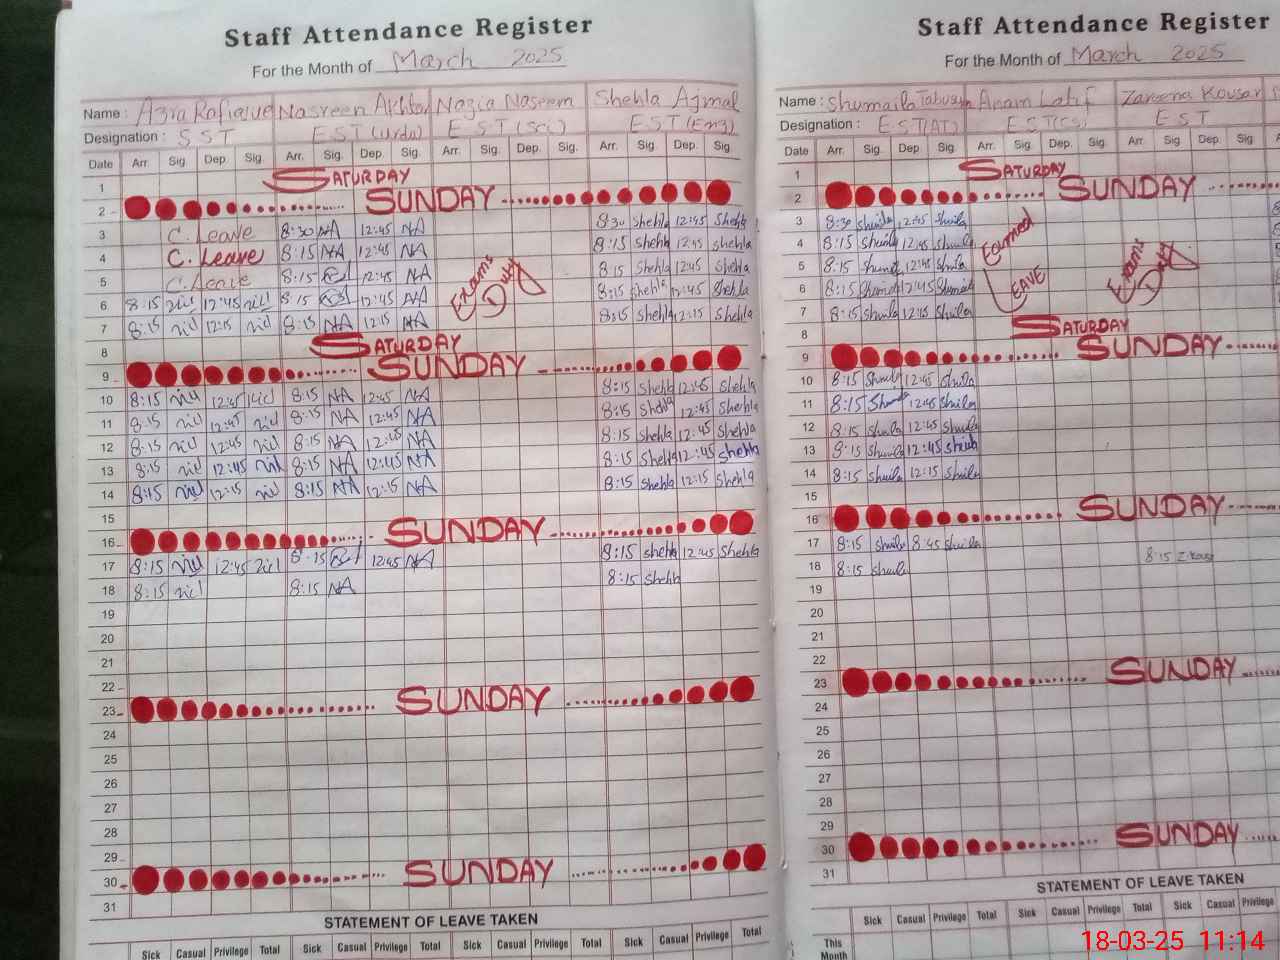 Staff Attendance Register
For the Month of March 2025
Name : Azra Rafique Nasreen Akhtar Nazia Naseem Shehla Ajmal
Designation : S S T E S T (Urdu) E S T (Sci) E S T (Eng)
Date Arr. Sig. Dep. Sig. Arr. Sig. Dep. Sig. Arr. Sig. Dep. Sig. Arr. Sig. Dep. Sig.
1 SATURDAY
2 SUNDAY
3 C. Leave 8:30 NA 12:45 NA 8:30 Shehla 12:45 Shehla
4 C. Leave 8:15 NA 12:45 NA 8:15 Shehla 12:45 Shehla
5 C. Leave 8:15 12:45 NA Exams Duty 8:15 Shehla 12:45 Shehla
6 8:15 12:45 8:15 12:45 NA 8:15 Shehla 12:45 Shehla
7 8:15 12:15 8:15 NA 12:15 NA 8:15 Shehla 12:15 Shehla
8 SATURDAY
9 SUNDAY
10 8:15 12:45 8:15 NA 12:45 NA 8:15 Shehla 12:45 Shehla
11 8:15 12:45 8:15 NA 12:45 NA 8:15 Shehla 12:45 Shehla
12 8:15 12:45 8:15 NA 12:45 NA 8:15 Shehla 12:45 Shehla
13 8:15 12:45 8:15 NA 12:45 NA 8:15 Shehla 12:45 Shehla
14 8:15 12:15 8:15 NA 12:15 NA 8:15 Shehla 12:15 Shehla
15
16 SUNDAY
17 8:15 12:45 8:15 12:45 NA 8:15 Shehla 12:45 Shehla
18 8:15 8:15 NA 8:15 Shehla
19
20
21
22
23 SUNDAY
24
25
26
27
28
29
30 SUNDAY
31
STATEMENT OF LEAVE TAKEN
Sick Casual Privilege Total Sick Casual Privilege Total Sick Casual Privilege Total Sick Casual Privilege Total
Staff Attendance Register
For the Month of March 2025
Name : Shumaila Tabusum Anam Latif Zareena Kousar
Designation : E S T (AT) E S T (CS) E S T
Date Arr. Sig. Dep. Sig. Arr. Sig. Dep. Sig. Arr. Sig. Dep. Sig.
1 SATURDAY
2 SUNDAY
3 8:30 12:45
4 8:15 12:45 Earned
5 8:15 12:45 Exams Duty
6 8:15 12:45 LEAVE
7 8:15 12:15
8 SATURDAY
9 SUNDAY
10 8:15 12:45
11 8:15 12:45
12 8:15 12:45
13 8:15 12:45
14 8:15 12:15
15
16 SUNDAY
17 8:15 8:45
18 8:15 8:15
19
20
21
22
23 SUNDAY
24
25
26
27
28
29
30 SUNDAY
31
STATEMENT OF LEAVE TAKEN
Sick Casual Privilege Total Sick Casual Privilege Total Sick Casual Privilege
This Month
18-03-25 11:14